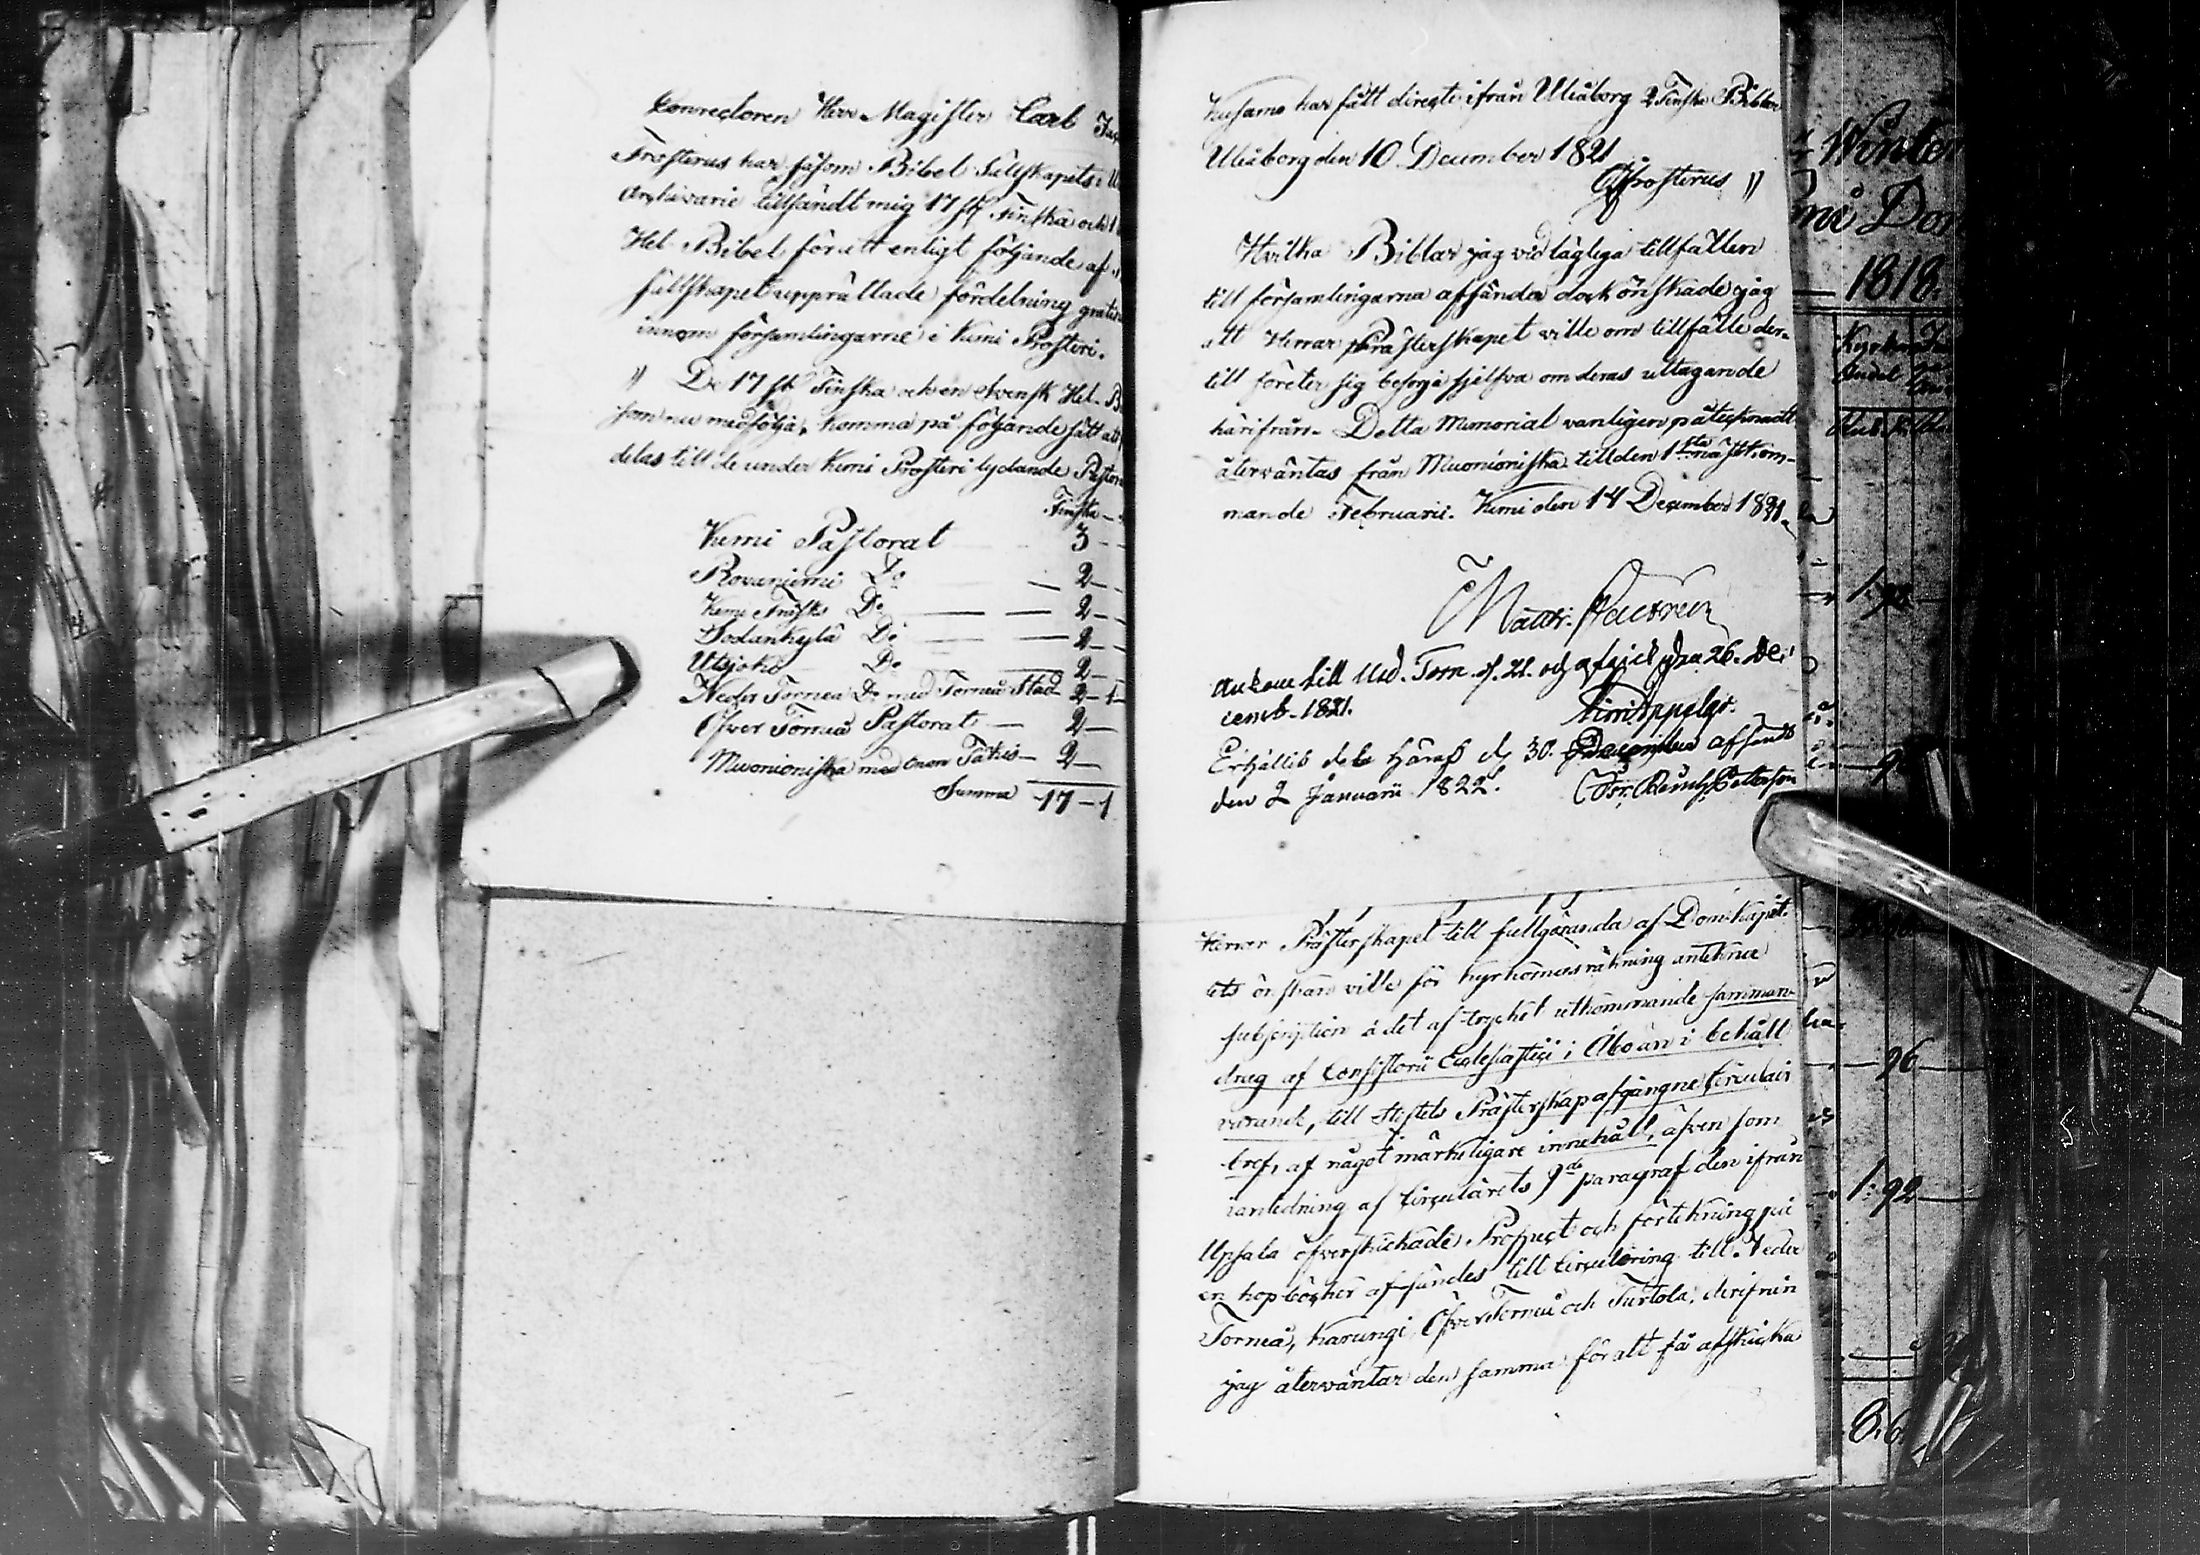 Conrectoren Herr Magister Carl
Frosterus har såsom Bibel Sällskapets
Archivarie tillsändt mig 17 st. Finska och 1
Hel Bibel för att enligt följande af
sällskapet upprättade fördelning gratis
innom församlingarne i Kemi Prosteri.
" De 17 st Finska och en Svensk Hel. B
som nu medfölja, komma på följande sätt att
delas till de under Kemi Prosteri lydande Pastor
Finska —
Kemi Pastorat 3 -
Rovaniemi Do — 2 -
Kemi Träsk Do — — 2 -
Sodankylä Do — — 2 -
Utsjoki Do — 2 -
Neder Torneå Do med Torneå Stad 2 - 1
Öfver Torneå Pastorat — 2 —
Muonioniska med — 2 —
Summa 17 - 1
Kusamo har fått directe ifrån Uleåborg 2 Finska Biblar
Uleåborg den 10 December 1821
Frosterus "
Hvilka Biblar jag vid lägliga tillfällen
till församlingarna afsänder dock önskade jag
att Herrar Prästerskapet ville om tillfälle der-
till företer sig besörja sjelfva om deras uttagande
härifrån. Detta Memorial vanligen påtecknadt
återväntas från Muonioniska till den 1sta nästkom-
mande Februarii. Kemi den 14 December 1821.
Matth. Castrén
Ankom till Ned. Torn. d. 21. och afgick dra 26. De-
cemb. 1821.
Erhållit dela häraf d. 30. December afsändt
den 2 Januarii 1822.
Herrar Prästerskapet till fullgöranda af Dom-Kapit-
lets önskan ville för kyrkornas räkning anteckna
subscription å det af trycket utkommande samman-
drag af Consistorii Ecclesiastici i Åbo än i behåll
varande, till Stiftets Prästerskap afgångne circulair
bref, af något märkeligare innehåll, äfven som
i anledning af Circulairets 9de paragraf den ifrån
Upsala öfverskickade Prospect och förtekning på
en hop böcker afsändes till circulering till Neder
Torneå, Karungi, Öfver Torneå och Turtola, derifrån
jag återväntar den samma för att få afskicka
Winter
1818.
1: 92
26
1: 92